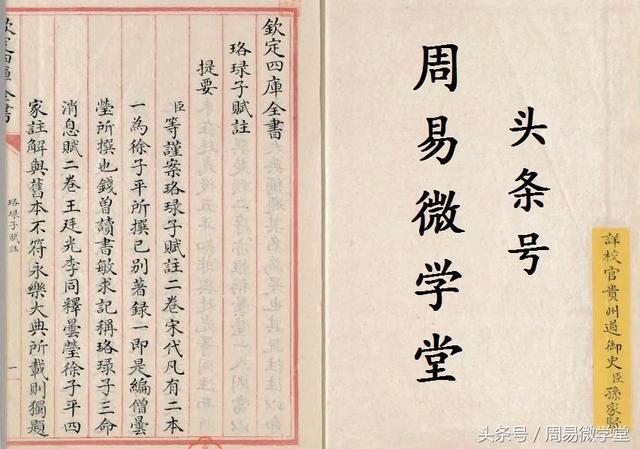 欽定四庫全書
珞琭子賦註
提要
臣等謹案珞琭子賦註二卷宋代凡有二本
一為徐子平所撰已别著録一即是編僧曇
瑩所撰也錢曽讀書敏求記稱珞琭子三命
消息賦二卷王廷光李同釋曇瑩徐子平四
家註解與舊本不符永樂大典所載則獨題
珞琭子賦註
一
头条号
周易微学堂
詳校官貴州道御史臣孫家賢
头条号 / 周易微学堂